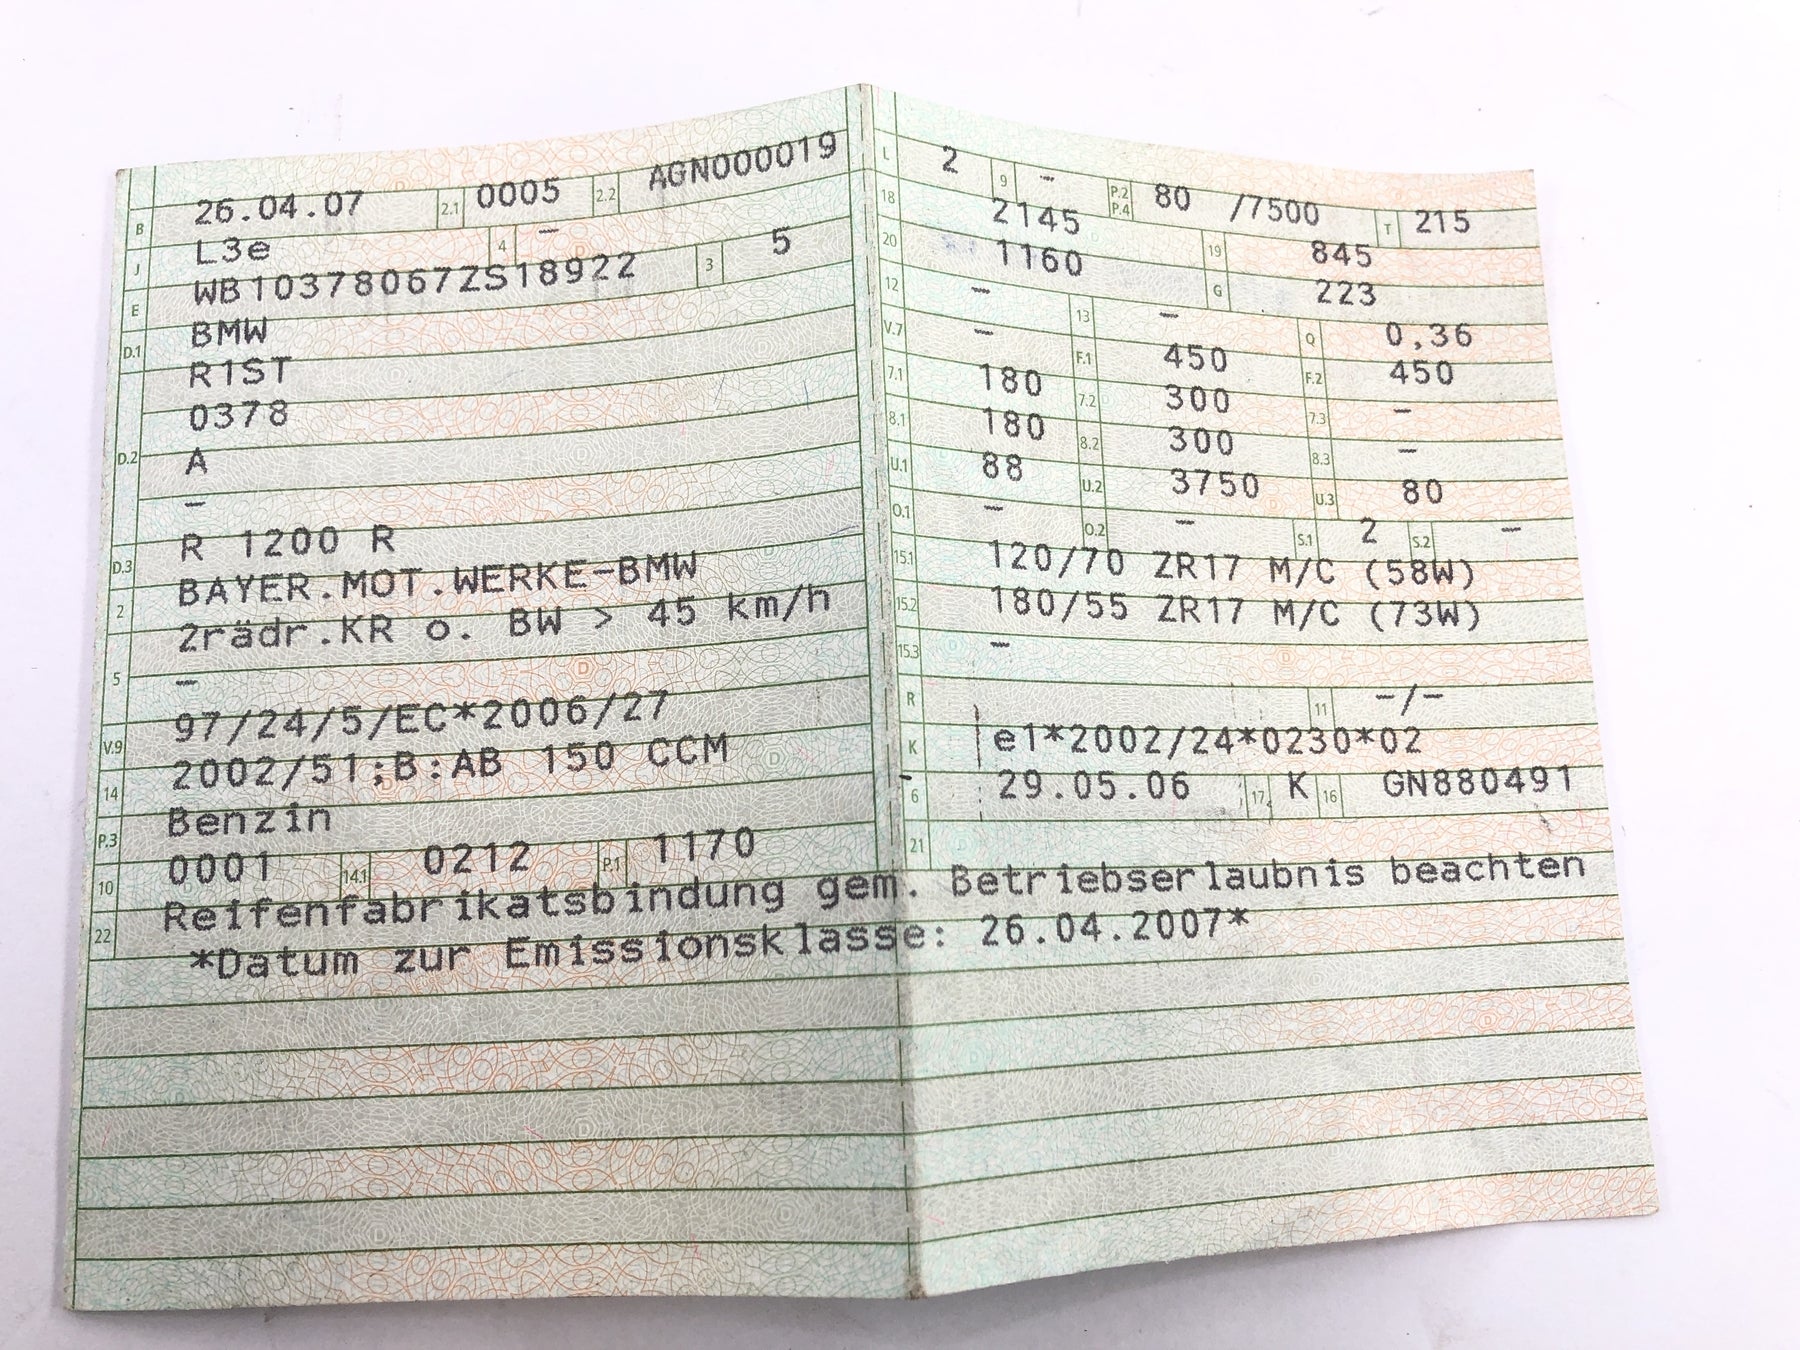 B 26.04.07 2.1 0005 2.2 AGN000019
J L3e 4 –
E WB10378067ZS18922 3 5
D.1 BMW
R1ST
0378
D.2 A
–
D.3 R 1200 R
2 BAYER.MOT.WERKE-BMW
2rädr.KR o. BW > 45 km/h
5 –
97/24/5/EC*2006/27
V.9 2002/51;B:AB 150 CCM
14 Benzin
P.3
10 0001 14.1 0212 P.1 1170
L 2 9 – P.2 P.4 80 /7500 T 215
18 2145 19 845
20 1160 G 223
12 – 13 – Q 0,36
V.7 – F.1 450 F.2 450
7.1 180 7.2 300 7.3 –
8.1 180 8.2 300 8.3 –
U.1 88 U.2 3750 U.3 80
O.1 – O.2 – S.1 2 S.2 –
15.1 120/70 ZR17 M/C (58W)
15.2 180/55 ZR17 M/C (73W)
15.3 –
R 11 –/–
K e1*2002/24*0230*02
6 29.05.06 17 K 16 GN880491
21
22 Reifenfabrikatsbindung gem. Betriebserlaubnis beachten
*Datum zur Emissionsklasse: 26.04.2007*